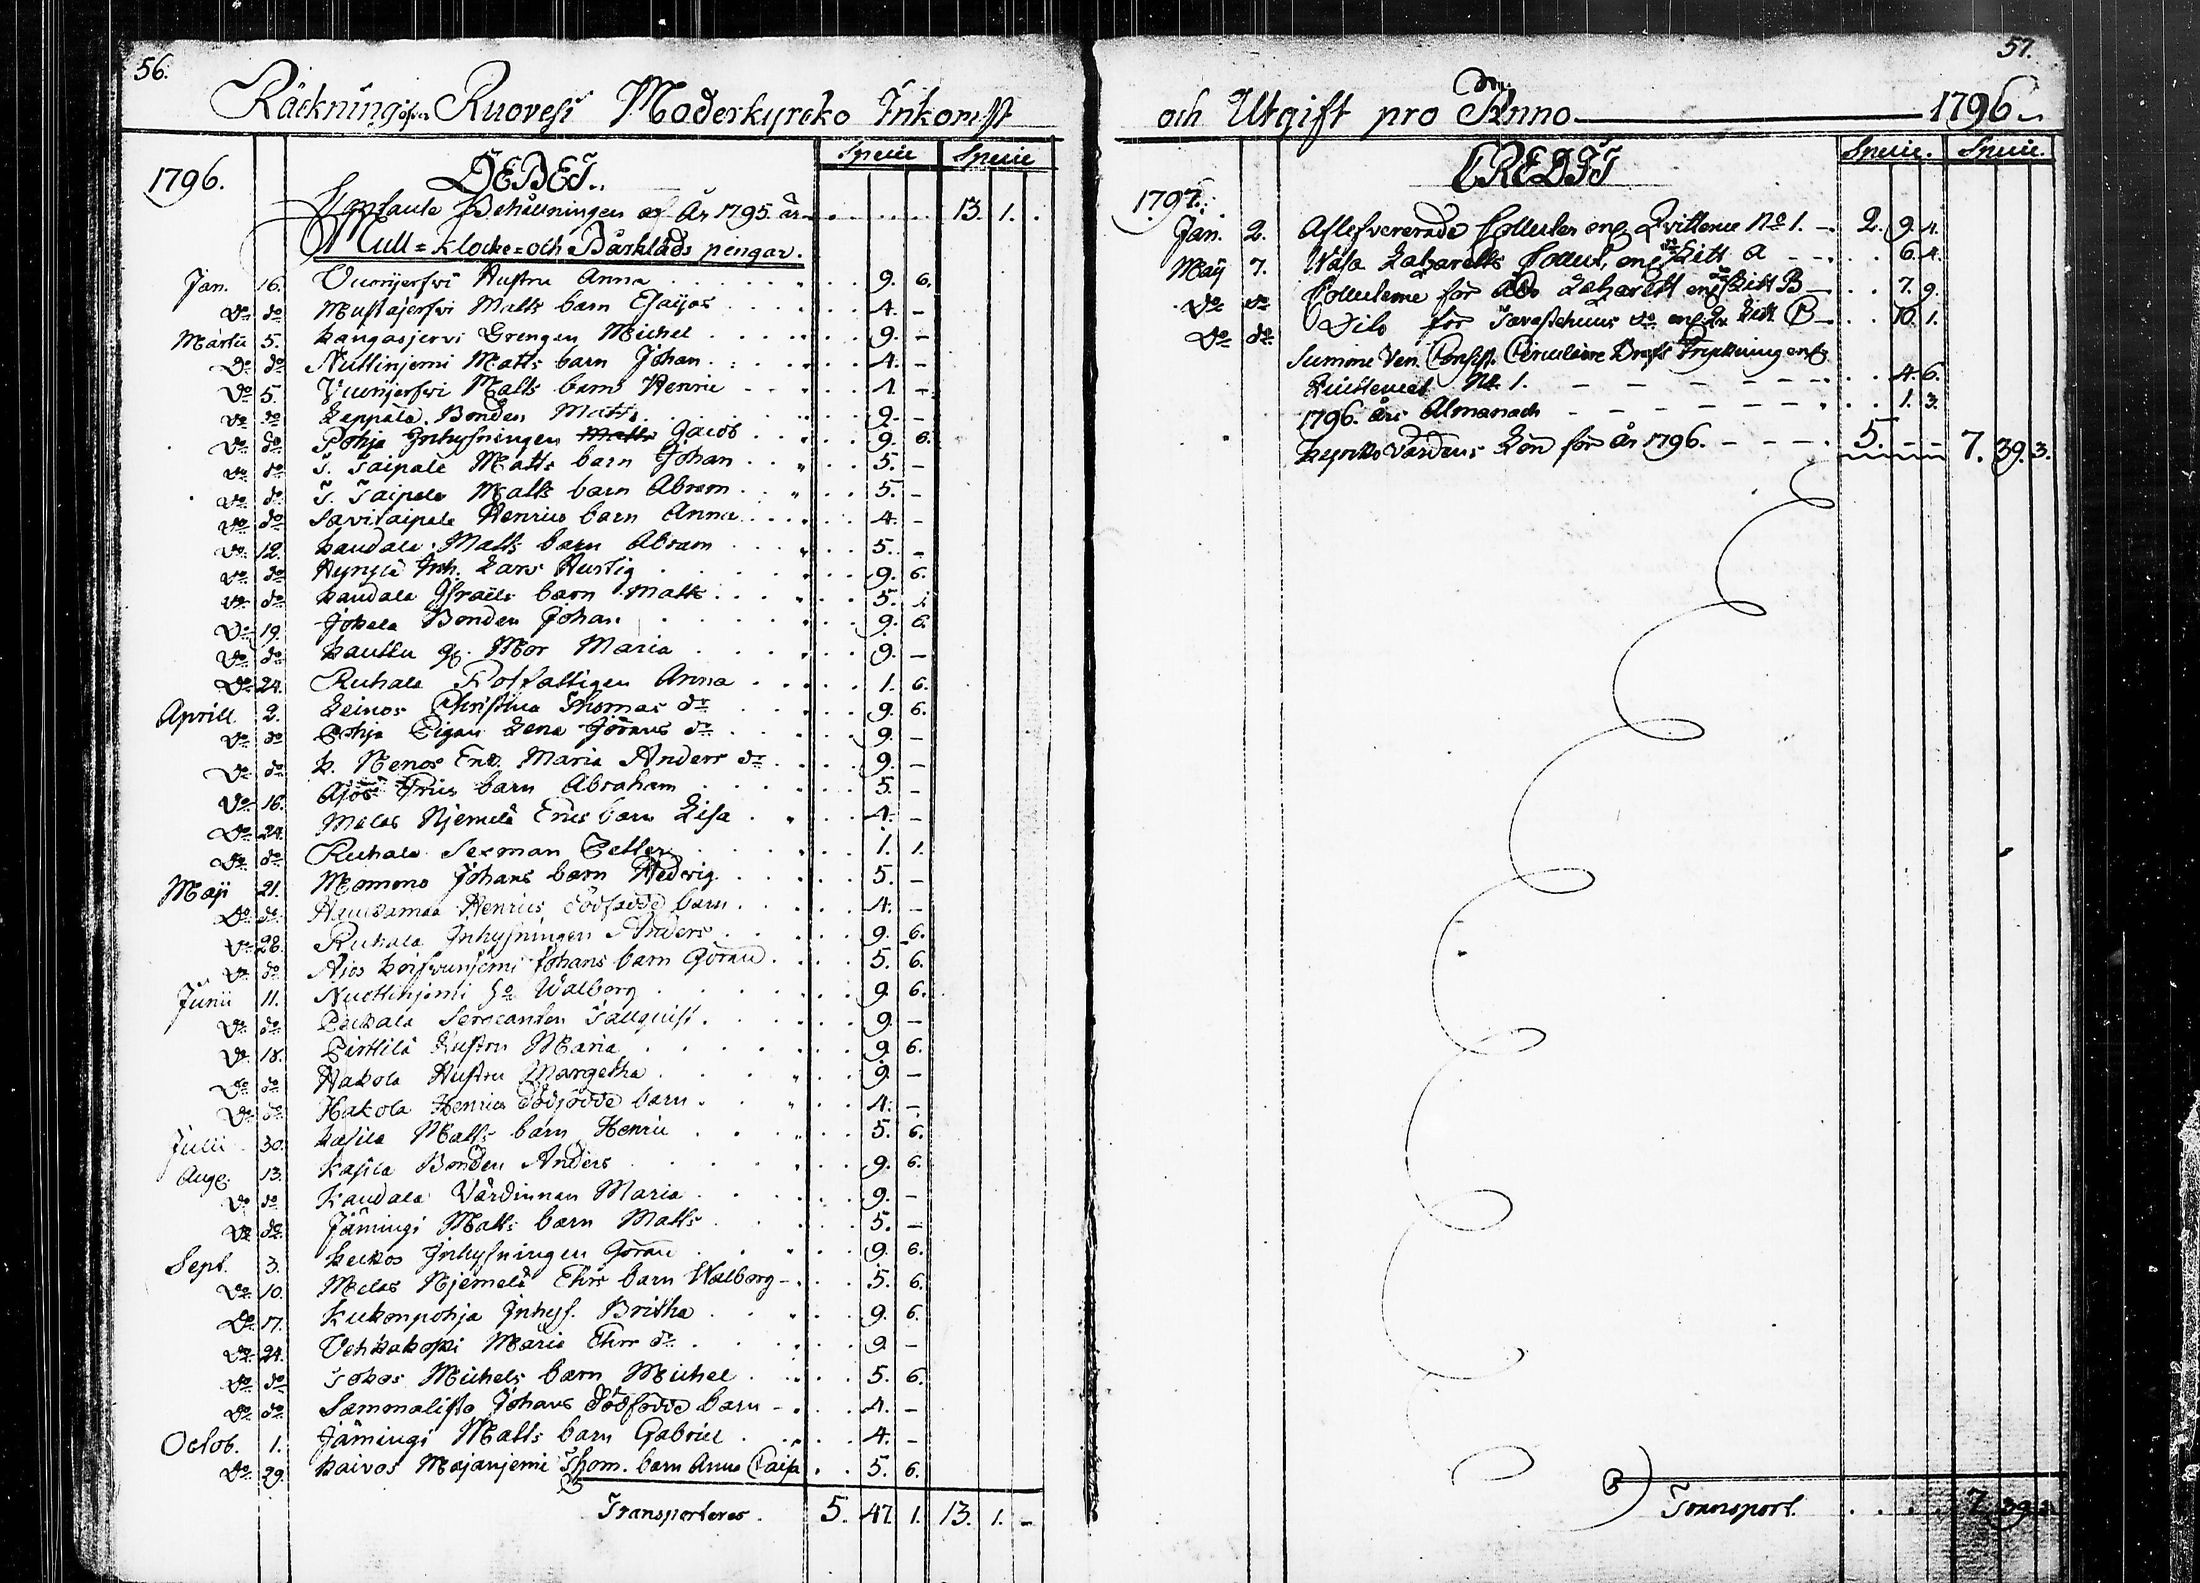 56.
Räckning öfver Ruovesi Moderkyrcko Inkomst
1796.
DEBET.
Specie Specie
Behållningen af År 1795 är 13. 1.
Mull= klocke= och Bårklädspengar.
Jan. 16. Vuorijerfvi Hustru Anna 9. 6.
Do do Mustajerfvi Matts barn Esaijas 4. -
Martii 5. Kangasjervi Drengen Michel 9. -
Do do Nuttinjemi Matts barn Johan 4. -
Do 5. Vuorijerfvi Matts barn Henric 4. -
Do do Leppälä Bonden Matts 9. -
Do do Pohja Inhysningen Matts Jacob 9. 6.
Do do T. Taipale Matts barn Johan 5. -
Do do T. Taipale Matts barn Abram 5. -
Do do Savitaipale Henrics barn Anna 4. -
Do 12. Kaudala Matts barn Abram 5. -
Do do Inh. Lars Hustig 9. 6.
Do do Kaudala Israels barn Matts 5.
Do 19. Jokela Bonden Johan 9. 6.
Do do Kauttu Mor Maria 9. -
Do 24. Ruhala Rotfattigen Anna 1. 6.
Aprill 2. Leinos Christina Thomas dr 9. 6.
Do do Pohja Pigan Lena Görans dr 9. -
Do do K. Nenos Enk. Maria Anders dr 9. -
Do 16. Ajos Erics barn Abraham 5. -
Do 24. Melas Njemelä Erics barn Lisa 4. -
Do do Ruhala Sexman Petter 1. 1.
Maji 21. Momono Johans barn Hedvig 5. -
Do do Henrics dödfödde barn 4. -
Do 28. Ruhala Inhysningen Anders 9. 6.
Do do Ajos Johans barn Göran 5. 6.
Junii 11. Nuottinjemi Walborg 9. 6.
Do do Peckala Sergeanten Tallquist 9. -
Do 18. Pirttilä Hustru Maria 9. 6.
Do do Hakola Hustru Margetha 9. -
Do do Hakola Henrics dödfödde barn 4. -
Julii 30. Kasila Matts barn Henric 5. 6.
Aug. 13. Kasila Bonden Anders 9. 6.
Do do Kaudala Värdinnan Maria 9. -
Do do Jämingi Matts barn Matts 5. -
Sept. 3. Keckos Inhysningen Göran 9. 6.
Do 10. Melas Njemelä Ehrs barn Walborg 5. 6.
Do 17. Kukonpohja Inhys. Britha 9. 6.
Do 24. Vehkakoski Maria Ehrs dr 9 -
Do do Tokos Michels barn Michel 5. 6.
Do do Sammalisto Johans dödfödde barn 4. -
Octob. 1. Jämingi Matts barn Gabriel 4. -
Do 29. Kaivos Majanjemi Thom. barn Anna Caisa 5. 6.
Transporteres 5. 47. 1. 13. 1. -
57.
och Utgift pro Anno 1796
CREDIT
Specie. Specie.
1797.
Jan. 2. Aflefvererade Collecter enl. Qvittence No 1. 2. 9. 4.
Maij 7. Wasa Lazaretts Collect, enl. Litt A 6. 4.
Do do Collecterne för Åbo Lazarett enl. Litt B 7. 9.
Do do Dito för Tavastehuus do enl. Litt C 10. 1.
Summe Ven. Consist. Circulaire Brefs Tryckning enl.
Quittencet No. 1. 4. 6.
1796 års Almanach 1. 3.
Kyrcko Vårdens Lön för år 1796. 5. - - 7. 39. 3.
Transport. 7. 39. 3.